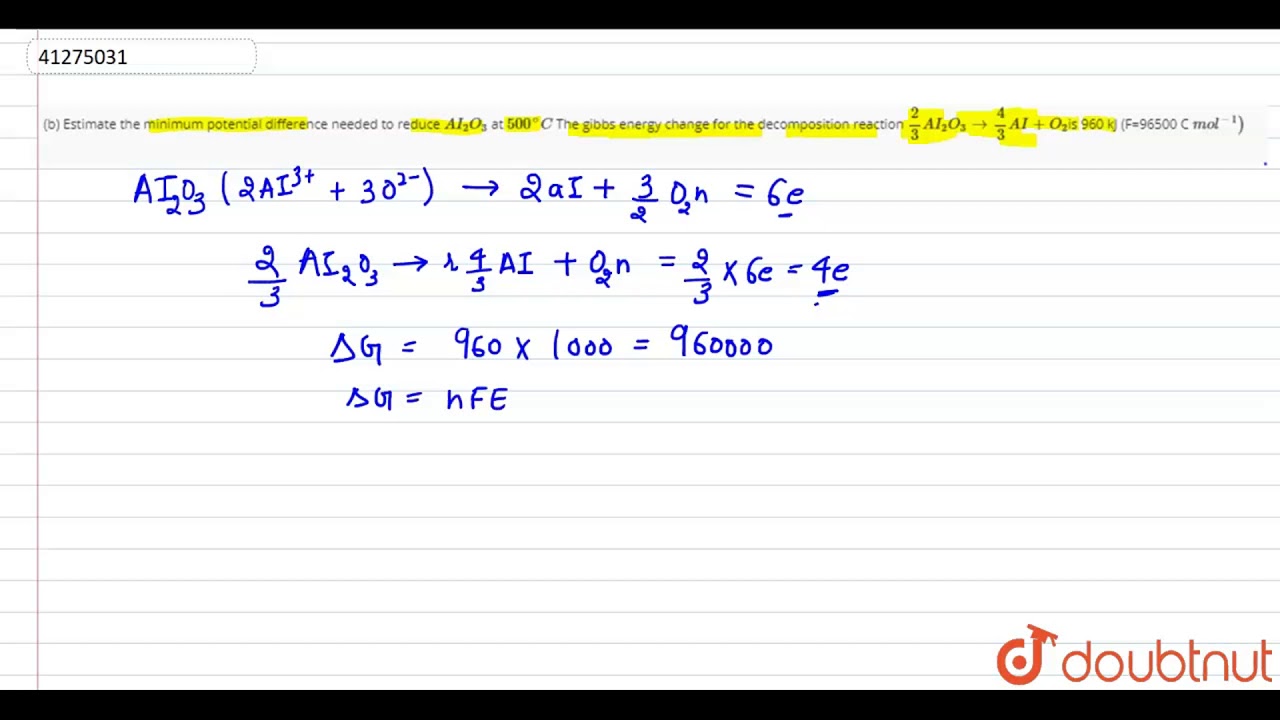 41275031
(b) Estimate the minimum potential difference needed to reduce AI₂O₃ at 500°C The gibbs energy change for the decomposition reaction 2/3 AI₂O₃ → 4/3 AI + O₂is 960 kJ (F=96500 C mol⁻¹)
AI₂O₃ (2AI³⁺ + 3O²⁻) → 2aI + 3/2 O₂n = 6e
2/3 AI₂O₃ → r 4/3 AI + O₂n = 2/3 × 6e = 4e
ΔG = 960 × 1000 = 960000
ΔG = nFE
doubtnut